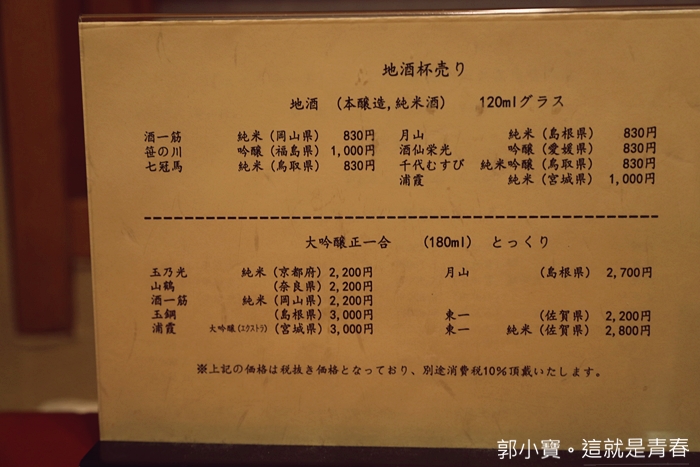 地酒杯売り
地酒 (本醸造,純米酒) 120mlグラス
酒一筋 純米(岡山県) 830円 月山 純米(島根県) 830円
笹の川 吟醸(福島県) 1,000円 酒仙栄光 吟醸(愛媛県) 830円
七冠馬 純米(鳥取県) 830円 千代むすび 純米吟醸(鳥取県) 830円
浦霞 純米(宮城県) 1,000円
大吟醸正一合 (180ml) とっくり
玉乃光 純米(京都府) 2,200円 月山 (島根県) 2,700円
山鶴 (奈良県) 2,200円
酒一筋 純米(岡山県) 2,200円
玉鋼 (島根県) 3,000円 東一 (佐賀県) 2,200円
浦霞 大吟醸(エクストラ)(宮城県) 3,000円 東一 純米(佐賀県) 2,800円
※上記の価格は税抜き価格となっており、別途消費税10%頂戴いたします。
郭小寶。這就是青春